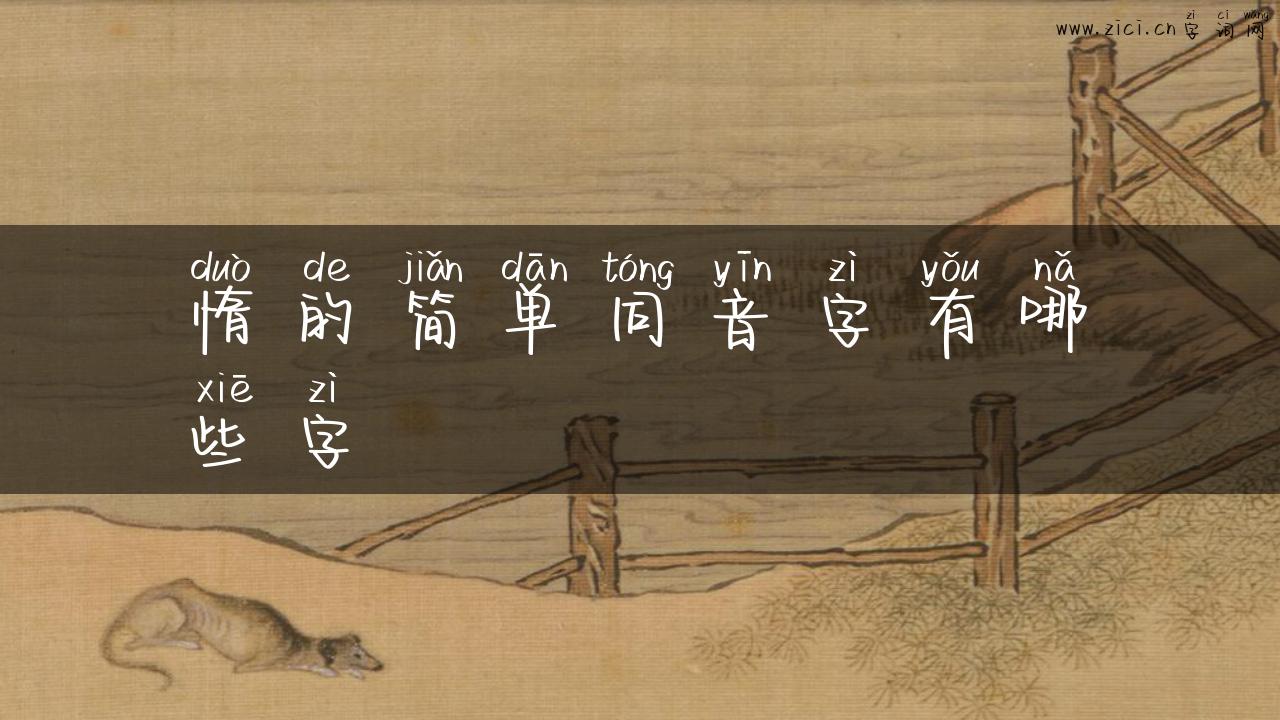 zì cí wǎng
www.zici.cn字词网
duò de jiǎn dān tóng yīn zì yǒu nǎ
惰的简单同音字有哪
xiē zì
些字